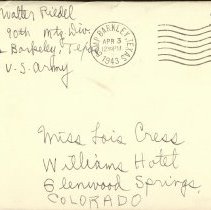 Walter Riedel
90th Mtz Div.
Barkeley, Texas
U-S-Army
BARKLEY, TEXAS
APR 3
12 30 PM
1943
Miss Lois Cress
Williams Hotel
Glenwood Springs
COLORADO